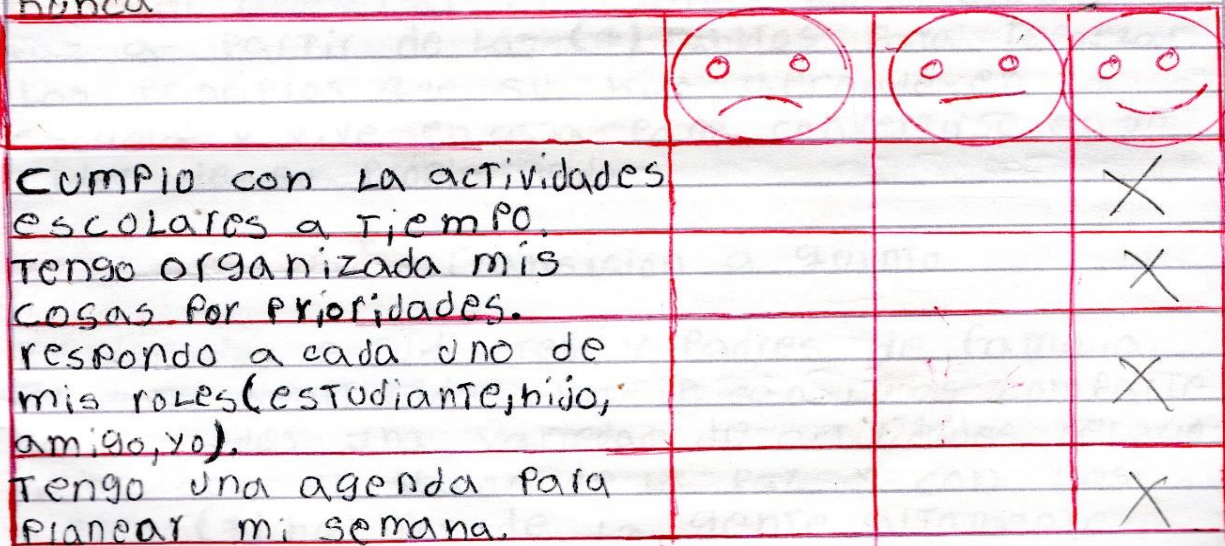 nunca
cumplo con La actividades
escolares a Tiempo.
Tengo organizada mis
cosas por prioridades.
respondo a cada uno de
mis roLes(esTudianTe, hijo,
amigo, yo).
Tengo una agenda para
planear mi semana.